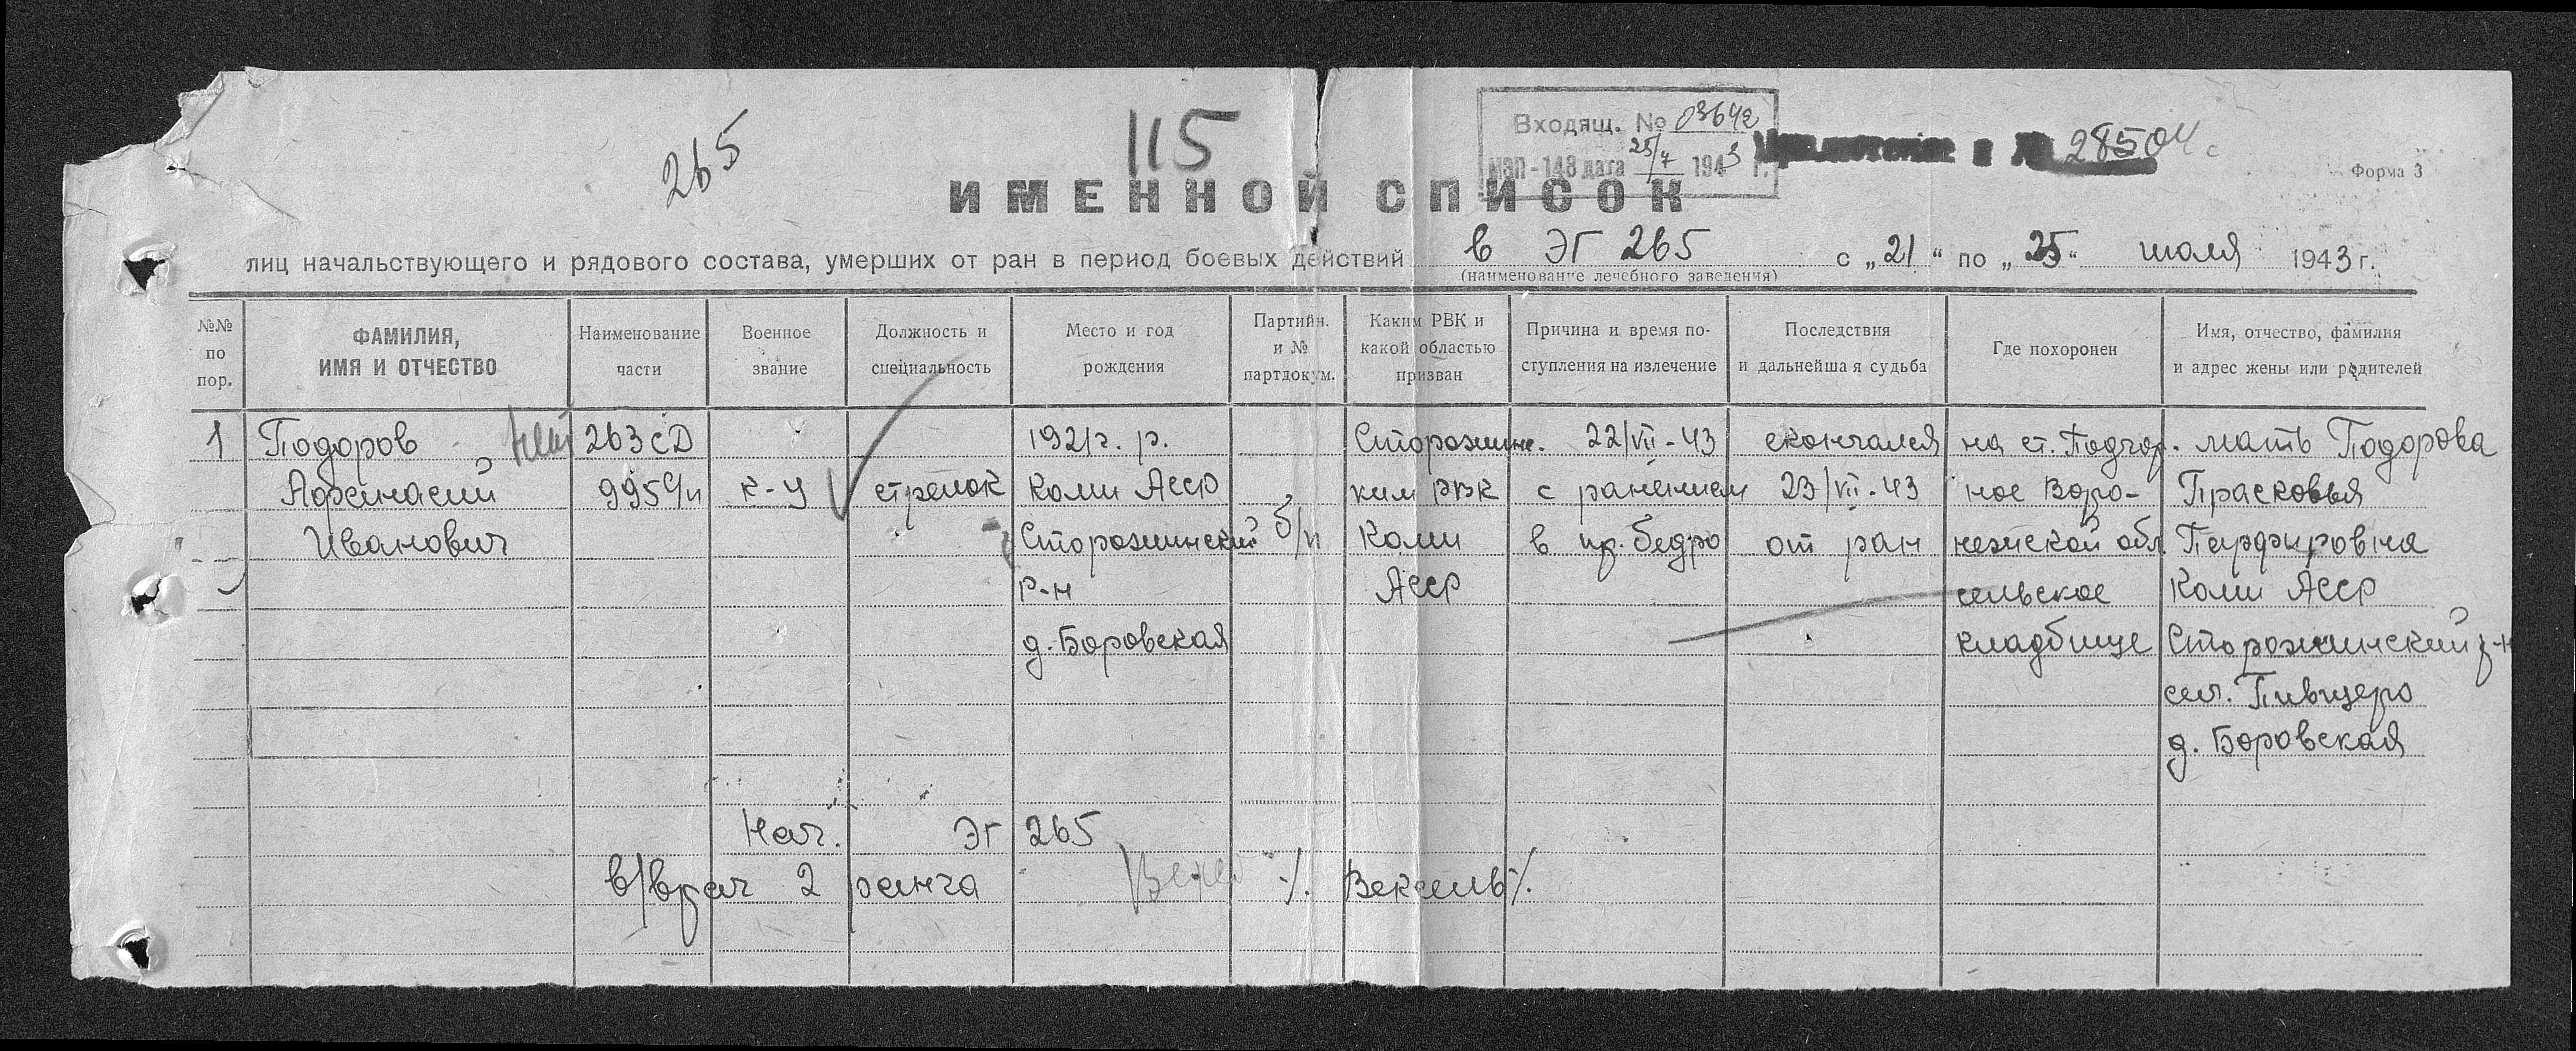 265
115
Входящ. № 03642
МЭП-148 дата 25/7 1943 г.
28504 с
Форма 3
ИМЕННОЙ СПИСОК
лиц начальствующего и рядового состава, умерших от ран в период боевых действий в ЭГ 265 с „21“ по „25“ июля 1943 г.
(наименование лечебного заведения)
№№ по пор.
ФАМИЛИЯ, ИМЯ И ОТЧЕСТВО
Наименование части
Военное звание
Должность и специальность
Место и год рождения
Партийн. и № партдокум.
Каким РВК и какой областью призван
Причина и время поступления на излечение
Последствия и дальнейшая судьба
Где похоронен
Имя, отчество, фамилия и адрес жены или родителей
1
Подоров
Афанасий
Иванович
263 сД
995 с/п
к-ц
стрелок
1921 г. р.
Коми Асср
Сторожинский
р-н
д. Боровская
б/п
Сторожинс.
ким РВК
Коми
Асср
22/VII-43
с ранением
в пр. бедро
скончался
23/VII-43
от ран
на ст. Подгор.
ное Воро-
нежской обл.
сельское
кладбище
мать Подорова
Прасковья
Парфировна
Коми Асср
Сторожинский р-н
сел. Пивщеро
д. Боровская
Нач. ЭГ 265
в/врач 2 ранга /. Вексель /.